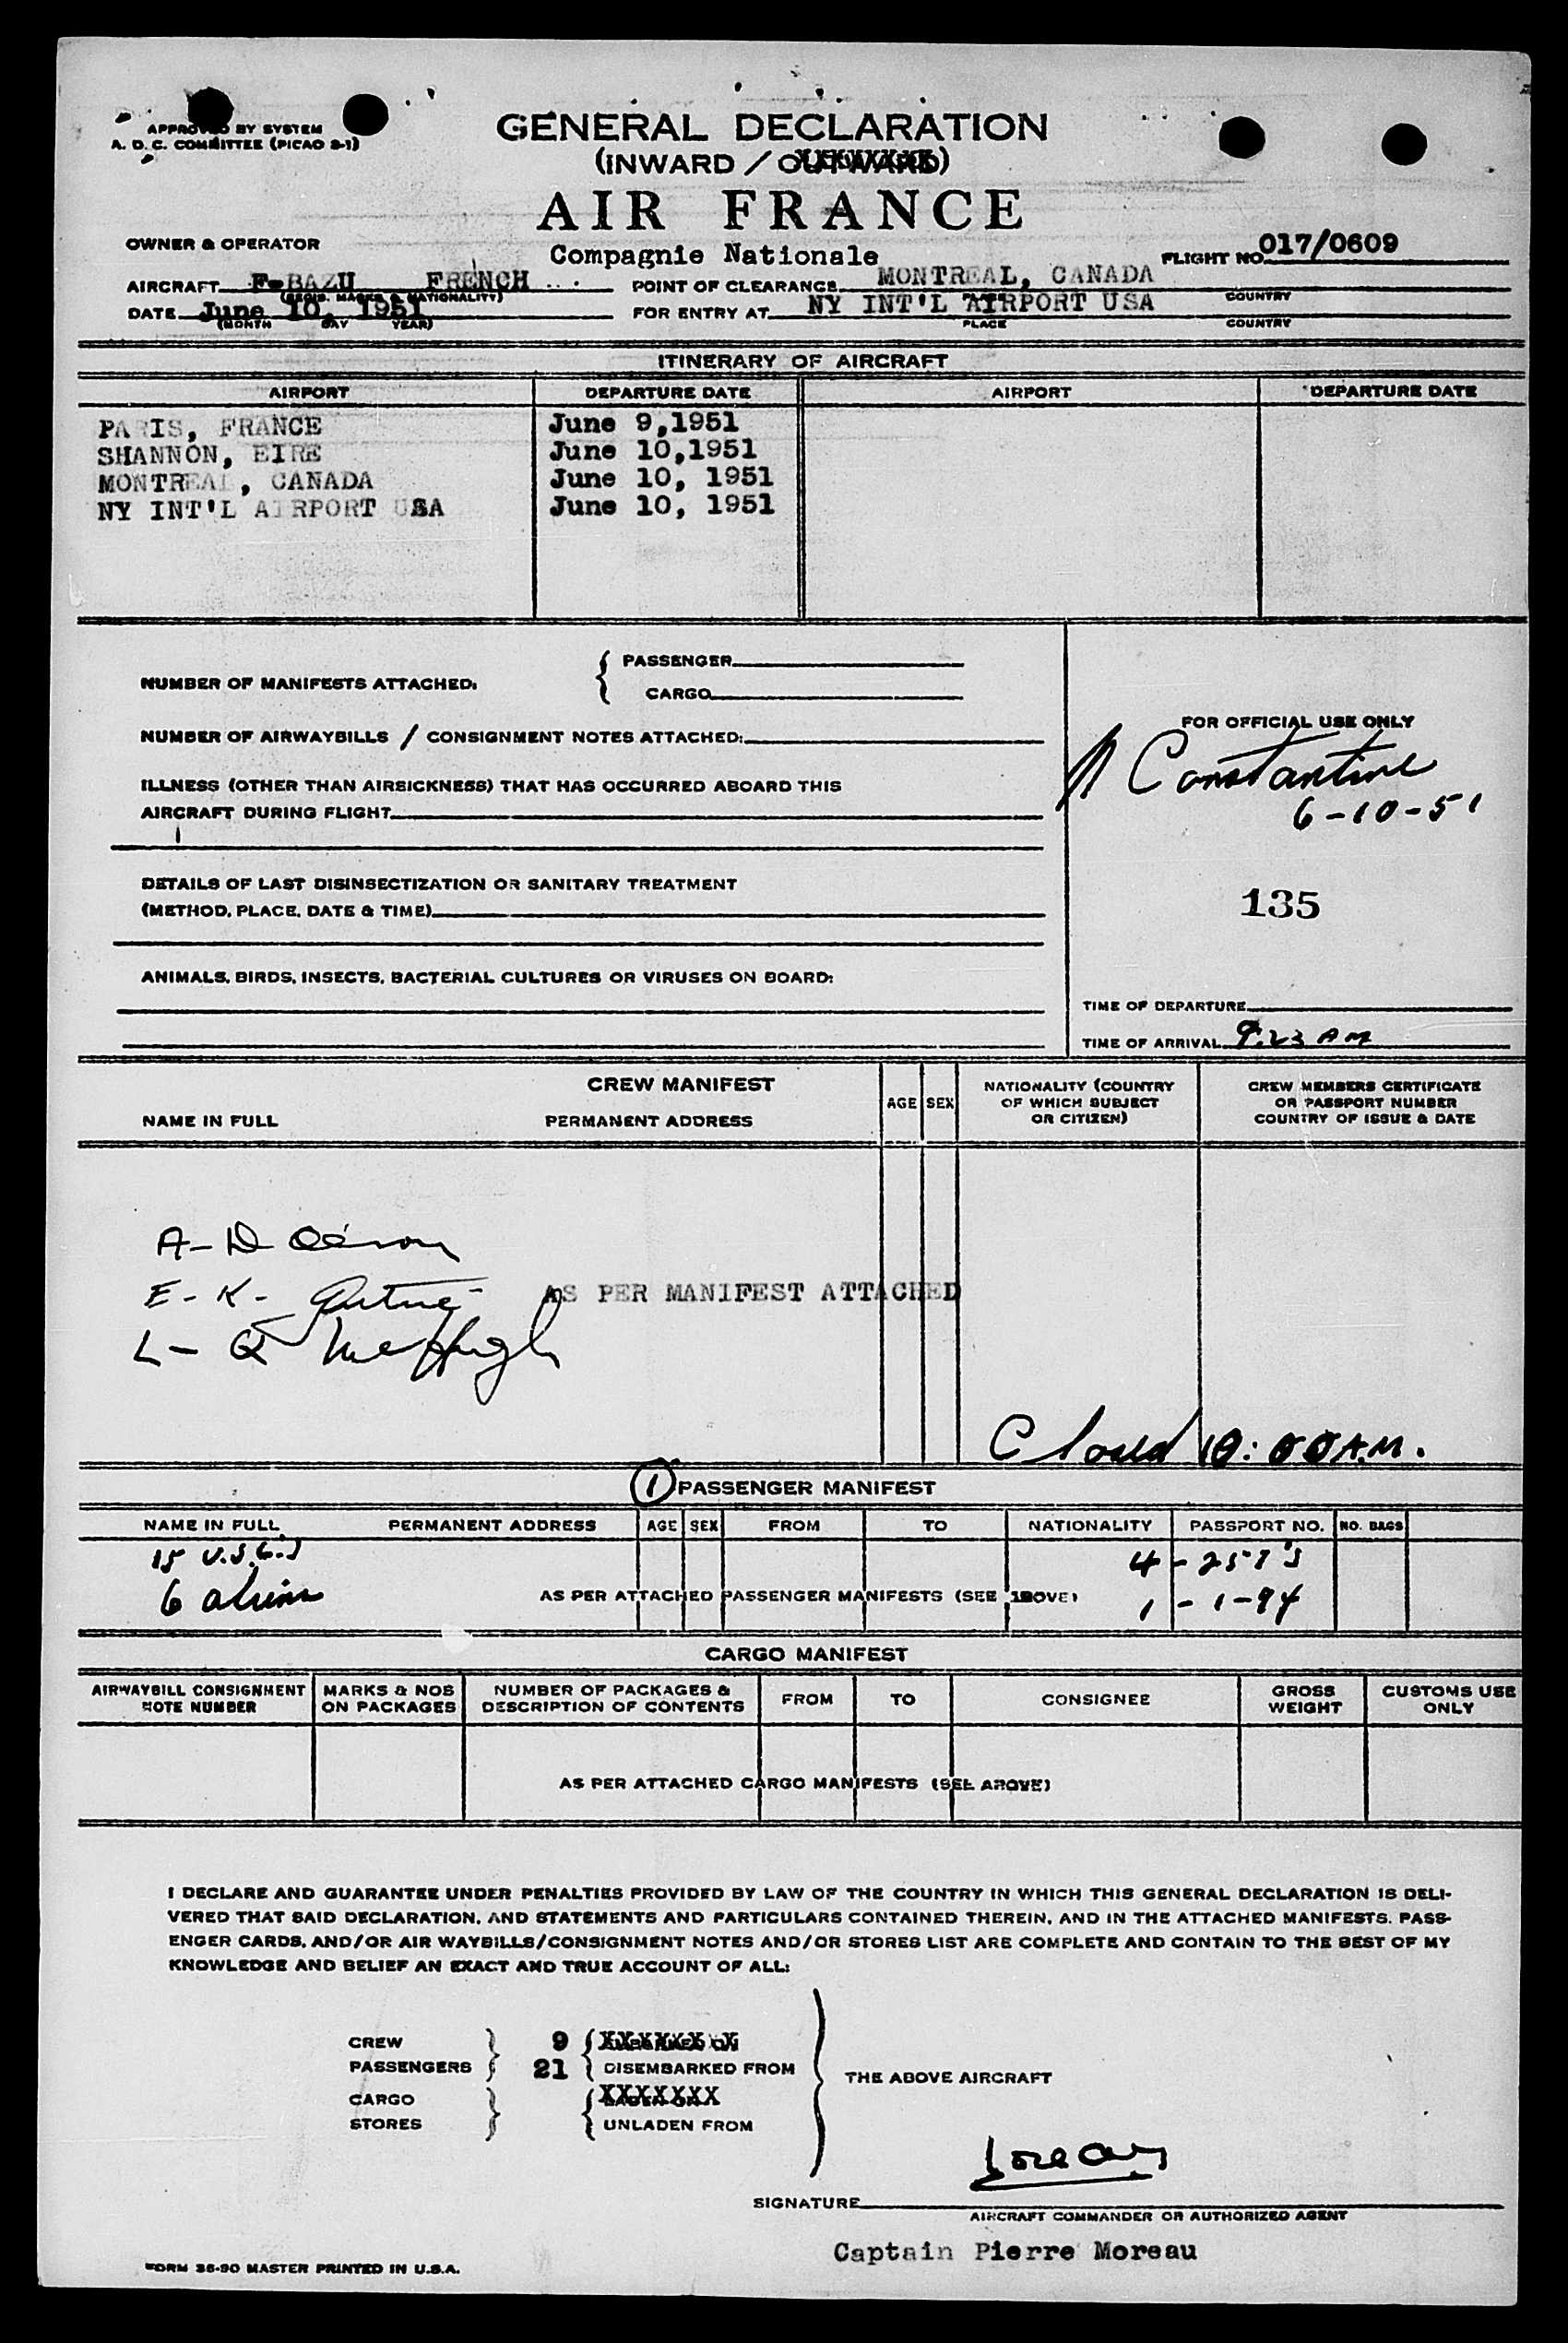 APPROVED BY SYSTEM
A. D. C. COMMITTEE (PICAO 2-1)
GENERAL DECLARATION
(INWARD / OUTWARD)
AIR FRANCE
Compagnie Nationale
OWNER & OPERATOR
FLIGHT NO. 017/0609
AIRCRAFT F-BAZU FRENCH
(REGIS. MARKS & NATIONALITY)
POINT OF CLEARANCE MONTREAL, CANADA
COUNTRY
DATE June 10, 1951
(MONTH DAY YEAR)
FOR ENTRY AT NY INT'L AIRPORT USA
PLACE COUNTRY
ITINERARY OF AIRCRAFT
AIRPORT DEPARTURE DATE AIRPORT DEPARTURE DATE
PARIS, FRANCE June 9,1951
SHANNON, EIRE June 10,1951
MONTREAL, CANADA June 10, 1951
NY INT'L AIRPORT USA June 10, 1951
NUMBER OF MANIFESTS ATTACHED: { PASSENGER
CARGO
NUMBER OF AIRWAYBILLS / CONSIGNMENT NOTES ATTACHED:
ILLNESS (OTHER THAN AIRSICKNESS) THAT HAS OCCURRED ABOARD THIS
AIRCRAFT DURING FLIGHT
DETAILS OF LAST DISINSECTIZATION OR SANITARY TREATMENT
(METHOD, PLACE, DATE & TIME)
ANIMALS, BIRDS, INSECTS, BACTERIAL CULTURES OR VIRUSES ON BOARD:
FOR OFFICIAL USE ONLY
Constantine
6-10-51
135
TIME OF DEPARTURE
TIME OF ARRIVAL 9:23 AM
CREW MANIFEST
NAME IN FULL PERMANENT ADDRESS AGE SEX NATIONALITY (COUNTRY OF WHICH SUBJECT OR CITIZEN) CREW MEMBERS CERTIFICATE OR PASSPORT NUMBER COUNTRY OF ISSUE & DATE
A - D
E - K -
L - Q McHugh
AS PER MANIFEST ATTACHED
Closed 10:00 A.M.
1 PASSENGER MANIFEST
NAME IN FULL PERMANENT ADDRESS AGE SEX FROM TO NATIONALITY PASSPORT NO. NO. BAGS
15 U.S.C.s
4 - 257's
6 aliens
AS PER ATTACHED PASSENGER MANIFESTS (SEE ABOVE)
1 - 1-94
CARGO MANIFEST
AIRWAYBILL CONSIGNMENT NOTE NUMBER MARKS & NOS ON PACKAGES NUMBER OF PACKAGES & DESCRIPTION OF CONTENTS FROM TO CONSIGNEE GROSS WEIGHT CUSTOMS USE ONLY
AS PER ATTACHED CARGO MANIFESTS (SEE ABOVE)
I DECLARE AND GUARANTEE UNDER PENALTIES PROVIDED BY LAW OF THE COUNTRY IN WHICH THIS GENERAL DECLARATION IS DELI-
VERED THAT SAID DECLARATION, AND STATEMENTS AND PARTICULARS CONTAINED THEREIN, AND IN THE ATTACHED MANIFESTS. PASS-
ENGER CARDS, AND/OR AIR WAYBILLS/CONSIGNMENT NOTES AND/OR STORES LIST ARE COMPLETE AND CONTAIN TO THE BEST OF MY
KNOWLEDGE AND BELIEF AN EXACT AND TRUE ACCOUNT OF ALL:
CREW 9 XXXXXXX XX
PASSENGERS 21 DISEMBARKED FROM
THE ABOVE AIRCRAFT
CARGO XXXXXXX
STORES UNLADEN FROM
SIGNATURE Moreau
AIRCRAFT COMMANDER OR AUTHORIZED AGENT
Captain Pierre Moreau
FORM 36-90 MASTER PRINTED IN U.S.A.